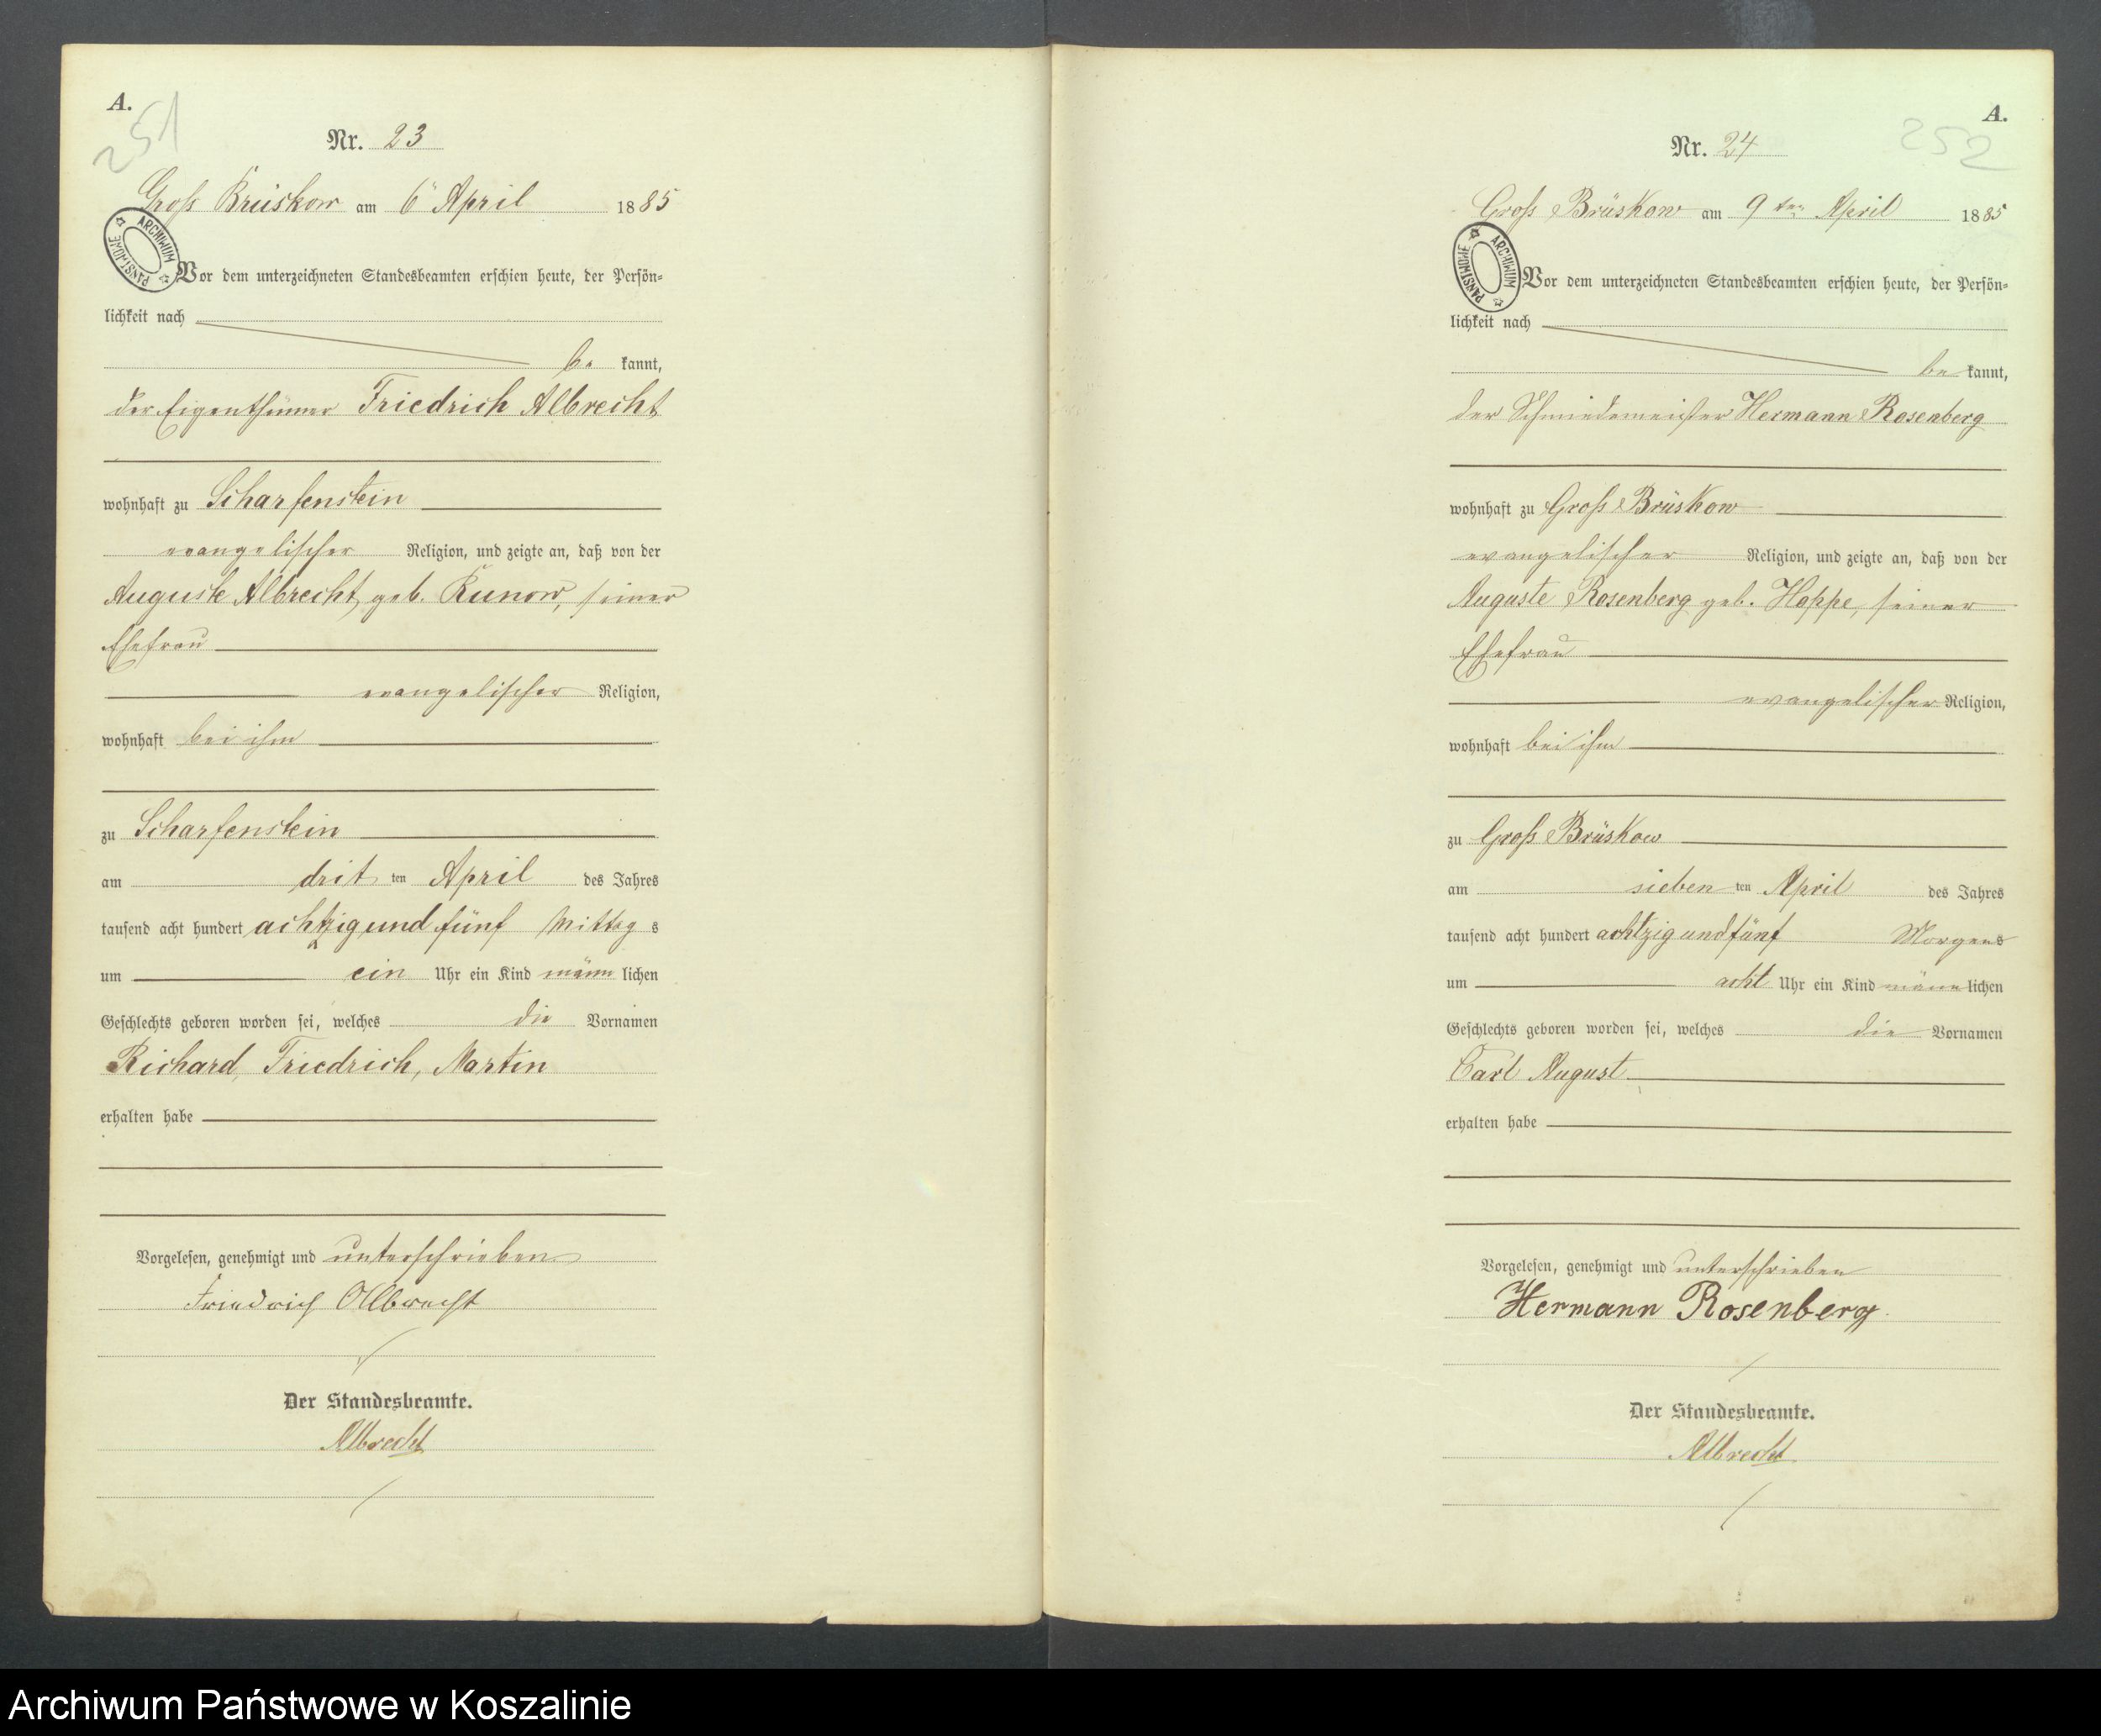 A.
251
Nr. 23
Gross Brüskow am 6ᵗ April 1885
ARCHIWUM PAŃSTWOWE
Vor dem unterzeichneten Standesbeamten erschien heute, der Persön-
lichkeit nach
be kannt,
der Eigenthümer Friedrich Albrecht
wohnhaft zu Scharfenstein
evangelischer Religion, und zeigte an, daß von der
Auguste Albrecht, geb. Kunow, seiner
Ehefrau
evangelischer Religion,
wohnhaft bei ihm
zu Scharfenstein
am drit ten April des Jahres
tausend acht hundert achtzig und fünf Mittag s
um ein Uhr ein Kind männ lichen
Geschlechts geboren worden sei, welches die Vornamen
Richard, Friedrich, Martin
erhalten habe
Vorgelesen, genehmigt und unterschrieben
Friedrich Albrecht
Der Standesbeamte.
Albrecht
A.
252
Nr. 24
Gross Brüskow am 9ten April 1885
ARCHIWUM PAŃSTWOWE
Vor dem unterzeichneten Standesbeamten erschien heute, der Persön-
lichkeit nach
be kannt,
der Schmiedemeister Hermann Rosenberg
wohnhaft zu Gross Brüskow
evangelischer Religion, und zeigte an, daß von der
Auguste Rosenberg geb. Hoppe, seiner
Ehefrau
evangelischer Religion,
wohnhaft bei ihm
zu Gross Brüskow
am sieben ten April des Jahres
tausend acht hundert achtzig und fünf Morgens
um acht Uhr ein Kind männ lichen
Geschlechts geboren worden sei, welches die Vornamen
Carl August
erhalten habe
Vorgelesen, genehmigt und unterschrieben
Hermann Rosenberg.
Der Standesbeamte.
Albrecht
Archiwum Państwowe w Koszalinie